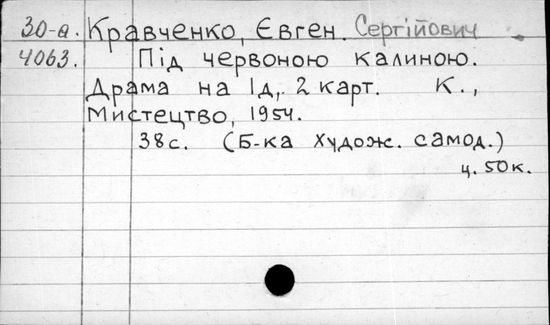 30-а. Кравченко, Євген. Сергійович
4063. Під червоною калиною.
Драма на 1д,. 2 карт. К.,
Мистецтво, 1954.
38с. (Б-ка худож. самод.)
ц. 50к.